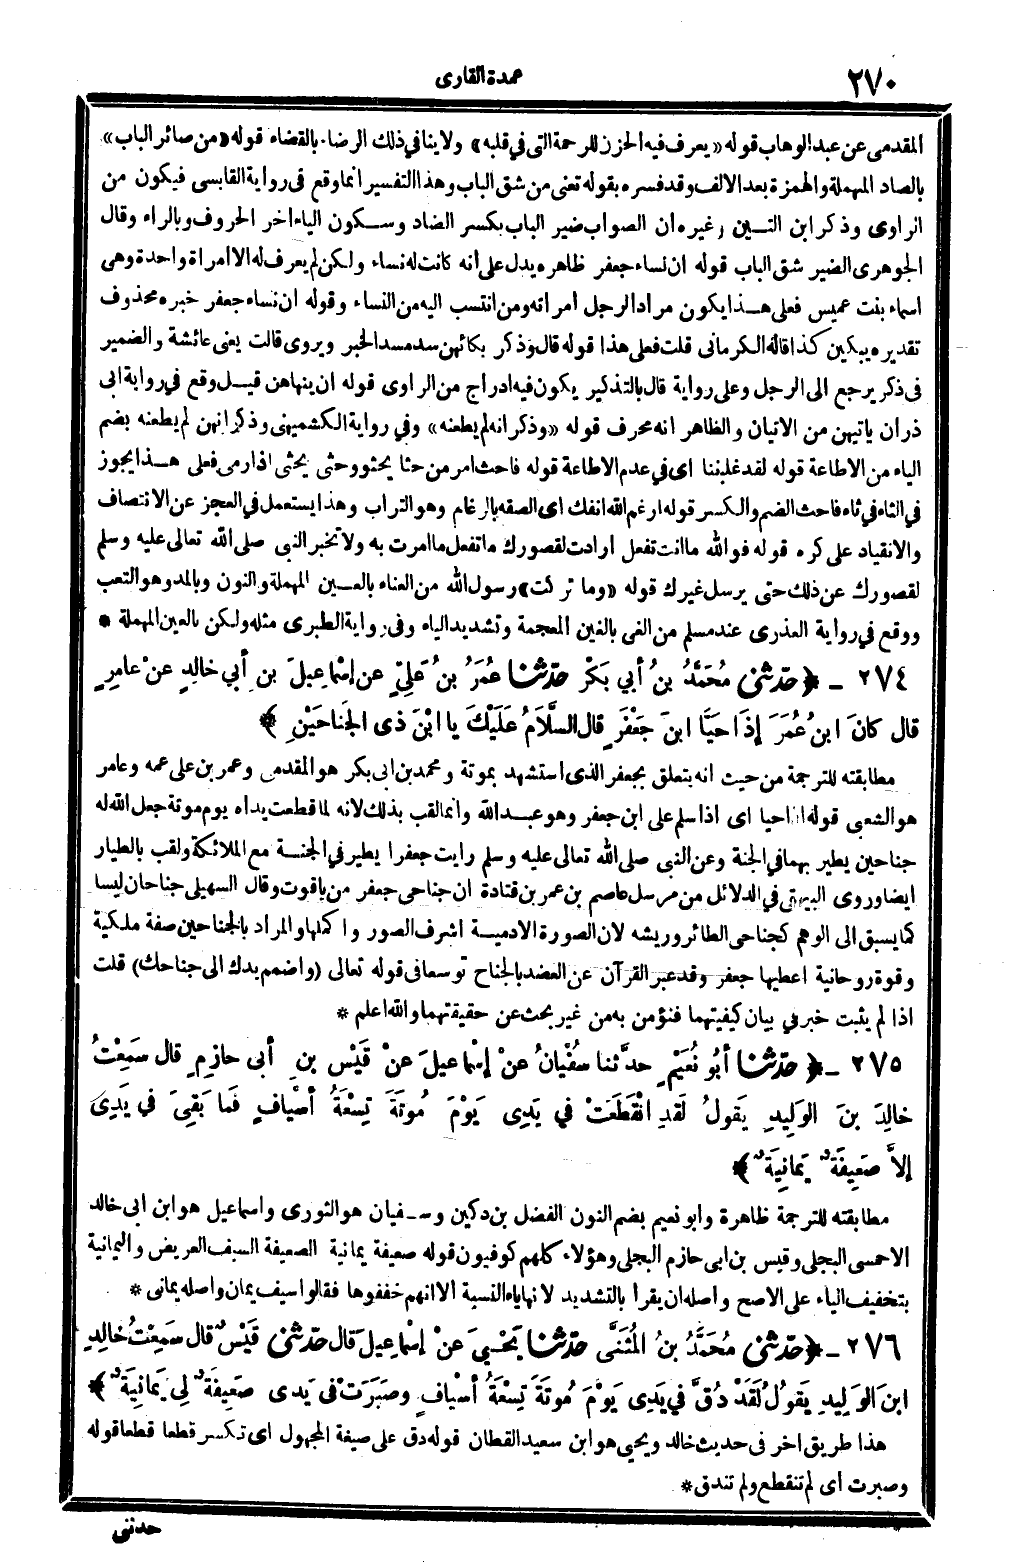 ٢٧٠
عمدة القارى
المقدمى عن عبد الوهاب قوله «يعرف فيه الحزن للرحمة التى فى قلبه» ولا ينافى ذلك الرضاء بالقضاء قوله «من صائر الباب»
بالصاد المهملة والهمزة بعد الالف وقد فسره بقوله تعنى من شق الباب وهذا التفسير انما وقع فى رواية القابسى فيكون من
الراوى وذكر ابن التين وغيره ان الصواب ضير الباب بكسر الضاد وسكون الياء اخر الحروف وبالراء وقال
الجوهرى الضير شق الباب قوله ان نساء جعفر ظاهره يدل على أنه كانت له نساء ولكن لم يعرف له الا امراة واحدة وهى
اسماء بنت عميس فعلى هذا يكون مراد الرجل امرأته ومن انتسب اليه من النساء وقوله ان نساء جعفر خبره محذوف
تقديره يبكين كذا قاله الكرمانى قلت فعلى هذا قوله قال وذكر بكائهن سد مسد الخبر ويروى قالت يعنى عائشة والضمير
فى ذكر يرجع الى الرجل وعلى رواية قال بالتذكير يكون فيه ادراج من الراوى قوله ان ينهاهن قيل وقع فى رواية ابى
ذر ان ياتيهن من الاتيان والظاهر انه محرف قوله «وذكر انه لم يطعنه» وفي رواية الكشميهنى وذكر انهن لم يطعنه بضم
الياء من الاطاعة قوله لقد غلبننا اى فى عدم الاطاعة قوله فاحث امر من حثا يحثو وحثى يحثى اذا رمى فعلى هذا يجوز
فى الثاء فى ثاء فاحث الضم والكسر قوله ارغم الله انفك اى الصقه بالرغام وهو التراب وهذا يستعمل فى العجز عن الانتصاف
والانقياد على كره قوله فوالله ما انت تفعل ارادت لقصورك ما تفعل ما امرت به ولا تخبر النبى صلى الله تعالى عليه وسلم
لقصورك عن ذلك حتى يرسل غيرك قوله «وما تركت» رسول الله من العناء بالعين المهملة والنون وبالمد وهو التعب
ووقع في رواية العذرى عند مسلم من الغى بالغين المعجمة وتشديد الياء وفى رواية الطبرى مثله ولكن بالعين المهملة *
٢٧٤ - ﴿حدَّثنى مُحَمَّدُ بنُ أبي بَكْرٍ حدَّثنا عُمَرُ بنُ عَلِيٍّ عن إسْماعِيلَ بنِ أبي خالِدٍ عنْ عامِرٍ
قال كانَ ابنُ عُمَرَ إذَا حَيَّا ابنَ جَعْفَرٍ قال السَّلاَمُ عَلَيْكَ يا ابْنَ ذى الجَناحَيْنِ ﴾
مطابقته للترجمة من حيث انه يتعلق بجعفر الذى استشهد بموتة ومحمد بن ابى بكر هو المقدمى وعمر بن على عمه وعامر
هو الشعبى قوله اذا حيا اى اذا سلم على ابن جعفر وهو عبد الله وانما لقب بذلك لانه لما قطعت يداه يوم موتة جعل الله له
جناحين يطير بهما في الجنة وعن النبى صلى الله تعالى عليه وسلم رايت جعفرا يطير في الجنة مع الملائكة ولقب بالطيار
ايضا وروى البيهقى في الدلائل من مرسل عاصم بن عمر بن قتادة ان جناحى جعفر من ياقوت وقال السهيلى جناحان ليسا
كما يسبق الى الوهم كجناحى الطائر وريشه لان الصورة الادمية اشرف الصور واكملها والمراد بالجناحين صفة ملكية
وقوة روحانية اعطيها جعفر وقد عبر القرآن عن العضد بالجناح توسعا فى قوله تعالى (واضمم يدك الى جناحك) قلت
اذا لم يثبت خبر في بيان كيفيتهما فنؤمن به من غير بحث عن حقيقتهما والله اعلم *
٢٧٥ - ﴿حدَّثنا أبُو نُعَيْمٍ حدثنا سُفْيانُ عنْ إسْماعِيلَ عنْ قَيْسِ بنِ أبى حازِمٍ قال سَمِعْتُ
خالِدَ بنَ الوَلِيدِ يَقولُ لَقدِ انْقَطَعَتْ في يَدِى يَوْمَ مُوتَةَ تِسْعَةُ أسْيافٍ فَما بَقِىَ في يَدِى
إلاَّ صَفِيحَةٌ يَمانِيَةٌ﴾
مطابقته للترجمة ظاهرة وابو نعيم بضم النون الفضل بن دكين وسفيان هو الثورى واسماعيل هو ابن ابى خالد
الاحمسى البجلى وقيس بن ابى حازم البجلى وهؤلاء كلهم كوفيون قوله صفيحة يمانية الصفيحة السيف العريض واليمانية
بتخفيف الياء على الاصح واصله ان يقرأ بالتشديد لانها ياء النسبة الا انهم خففوها فقالوا سيف يمان واصله يمانى *
٢٧٦ - ﴿حدَّثنى مُحَمَّدُ بنُ المُثَنَّى حدَّثنا يَحْيَى عنْ إسْماعِيلَ قال حدَّثنى قَيْسٌ قال سَمِعْتُ خالِدَ
ابنَ الوَلِيدِ يَقولُ لَقَدْ دُقَّ في يَدِى يَوْمَ مُوتَةَ تِسْعَةُ أسْيافٍ وصَبَرَتْ فى يَدى صَفِيحَةٌ لِى يَمانِيَةٌ ﴾
هذا طريق اخر فى حديث خالد ويحيى هو ابن سعيد القطان قوله دق على صيغة المجهول اى تكسر قطعا قطعا قوله
وصبرت اى لم تنقطع ولم تندق *
حدثنى